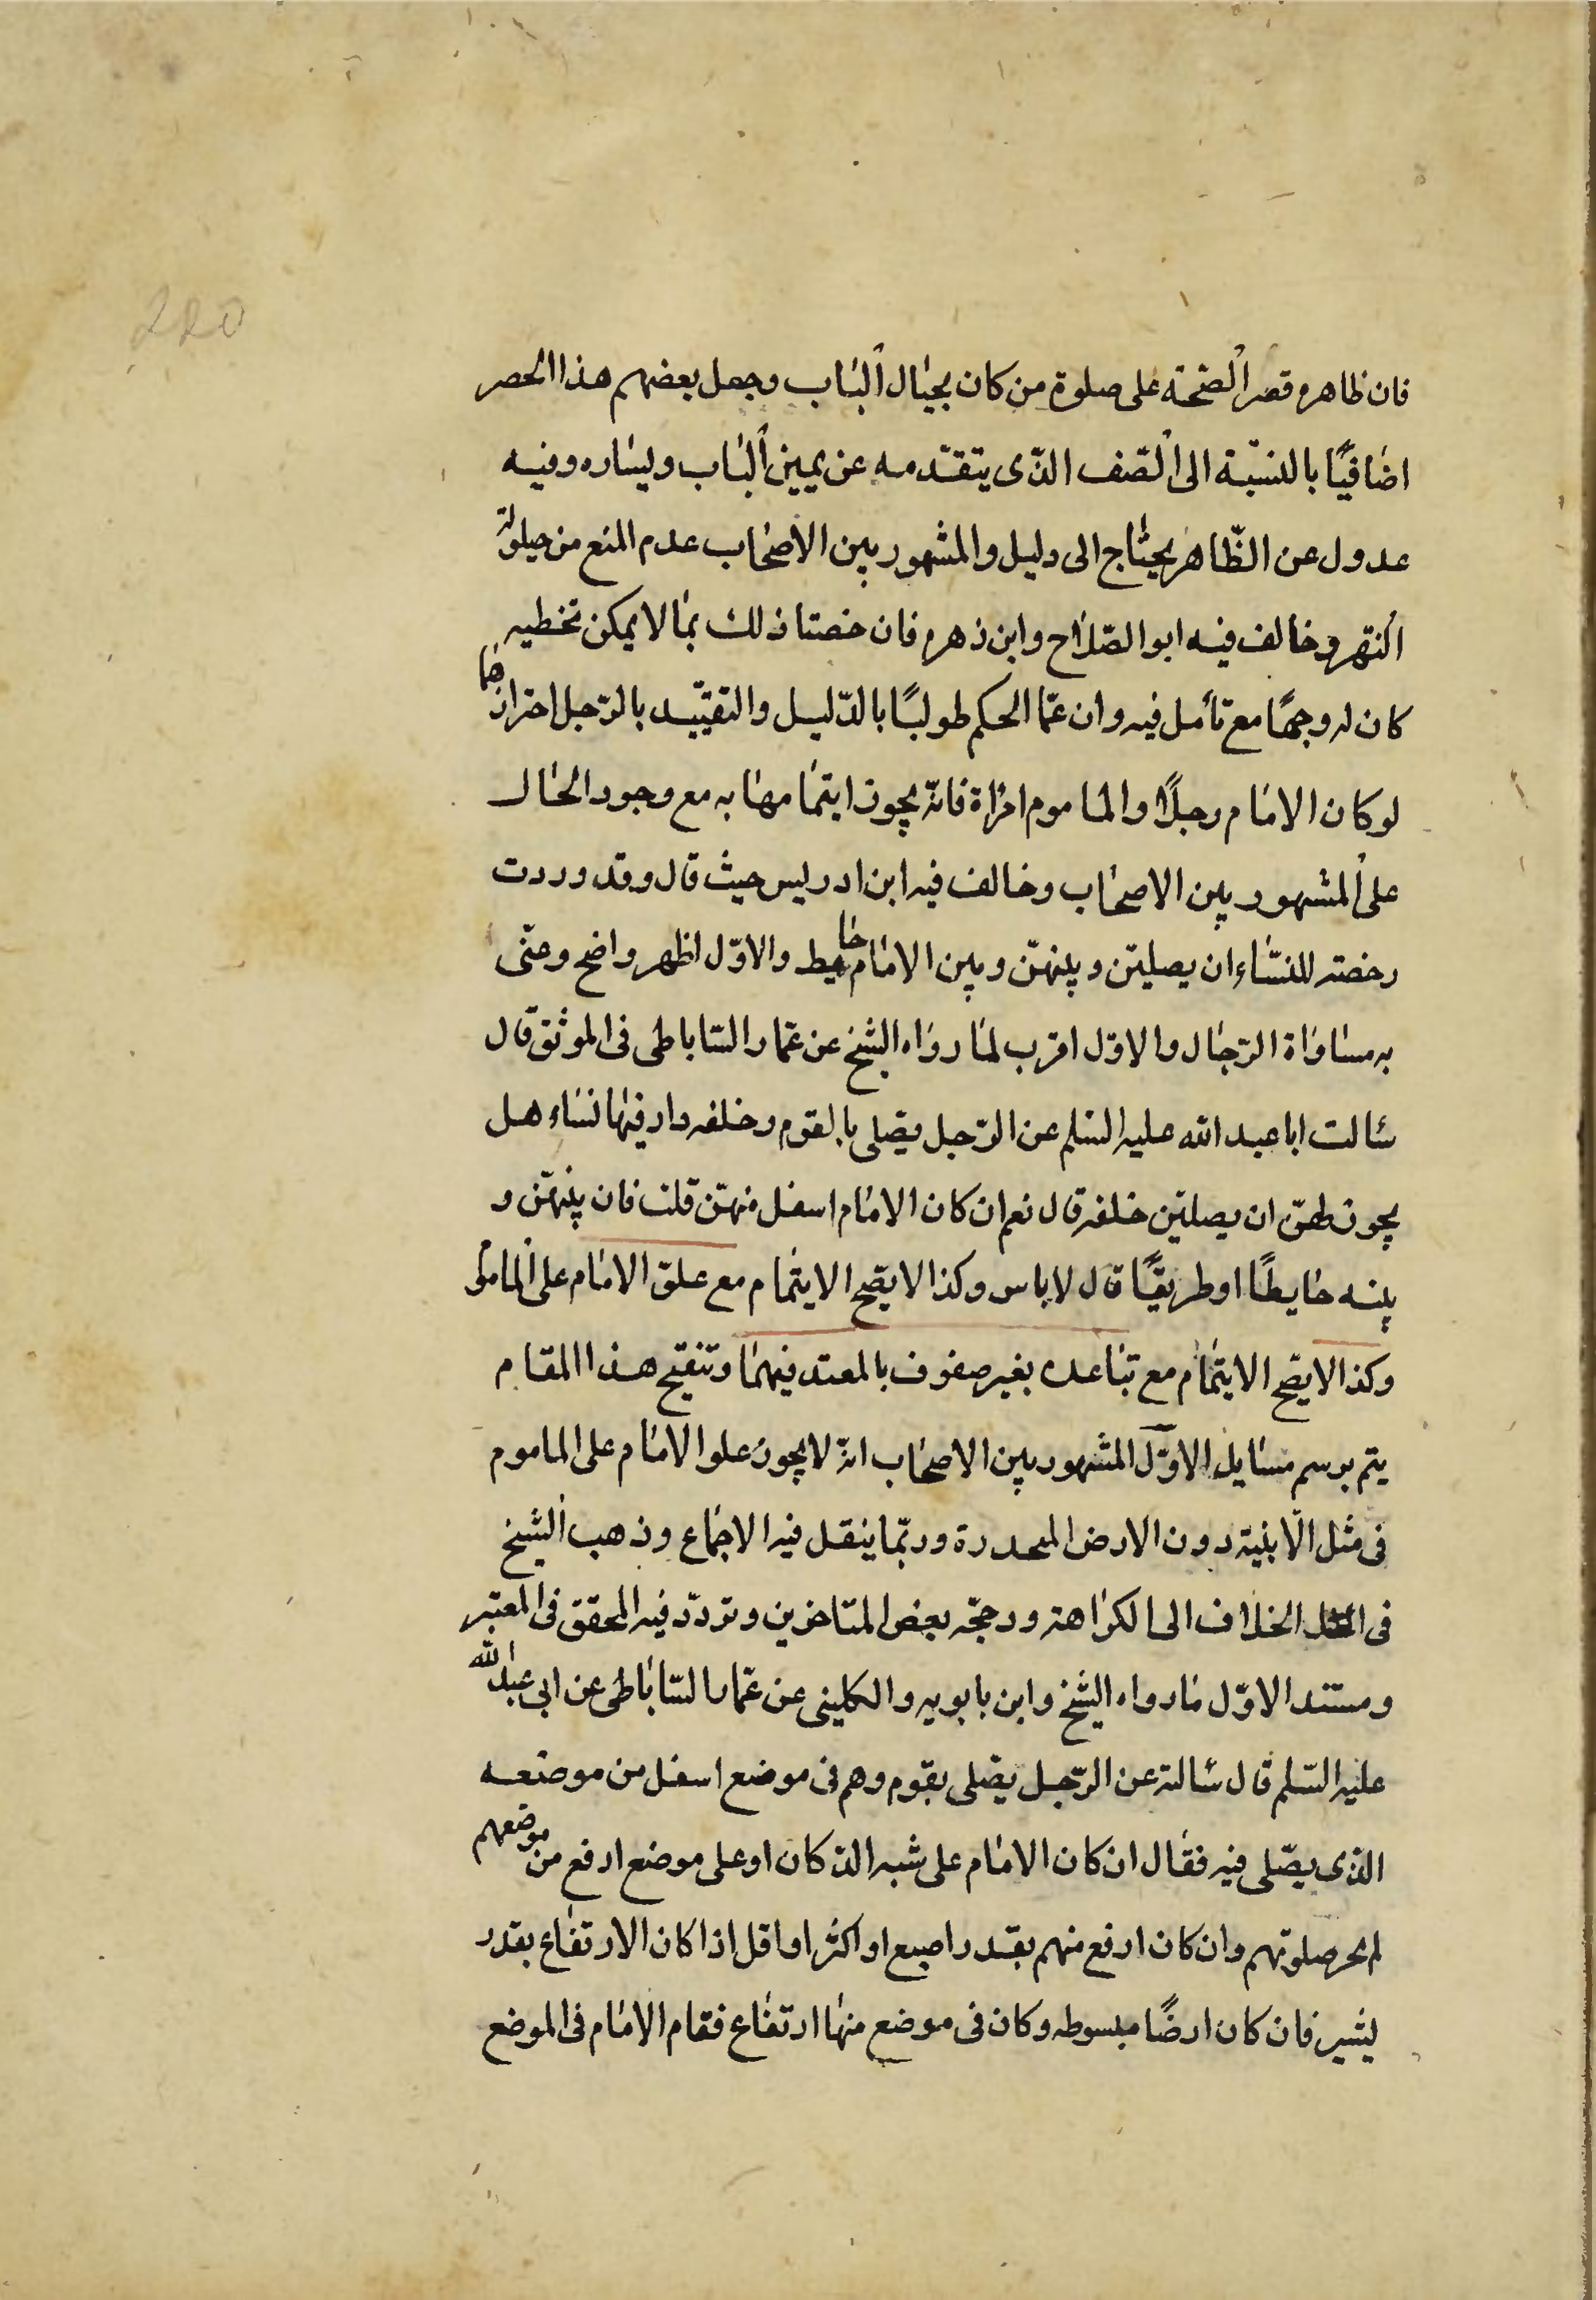 220
فان ظاهره قصر الصّحّة على صلوة من كان بحيال الباب وجعل بعضهم هذا الحصر
اضافيّا بالنسبة الى الصّف الذّى يتقدمه عن يمين الباب ويساره وفيه
عدول عن الظّاهر يحتاج الى دليل والمشهور بين الاصحاب عدم المنع من حيلولة
النّهر وخالف فيه ابو الصّلاح وابن زهره فان خصتا ذلك بما لا يمكن تخطيه
كان له وجهًا مع تأمل فيه وان عمّا الحكم طولبًا بالدّليل والتقييّد بالرّجل احتراز عما
لو كان الامام رجلًا والماموم امراة فانّه يجوز ايتمامها به مع وجود الحال
على المشهور بين الاصحاب وخالف فيه ابن ادريس حيث قال وقد وردت
رخصته للنسّاء ان يصليّن وبينهنّ وبين الامام حايط والاوّل اظهر واضح وعنّى
به مساواة الرّجال والاوّل اقرب لما رواه الشيخ عن عمّار السّاباطى فى الموثق قال
سالت ابا عبد الله عليه السّلم عن الرّجل يصّلى بالقوم وخلفه دار فيها نساء هل
يجوز لهنّ ان يصليّن خلفه قال نعم ان كان الامام اسفل منهنّ قلت فان بينهنّ و
بينه حايطًا او طريقًا قال لا باس وكذا لا يصّح الايتمام مع علوّ الامام على الماموم
وكذا لا يصّح الايتمام مع تباعده بغير صفوف بالمعتد فيهما وتنقيح هذا المقام
يتم برسم مسايل الاوّل المشهور بين الاصحاب انّه لا يجوز علو الامام على الماموم
فى مثل الابنية دون الارض المحدرة وربّما ينقل فيه الاجماع وذهب الشيخ
فى الخلاف الى الكراهته ورجّحه بعض المتاخرين وتردّد فيه المحقق فى المعتبر
ومستند الاوّل ما رواه الشيخ وابن بابويه والكلينى عن عمّار السّاباطى عن ابى عبد الله
عليه السّلم قال سالته عن الرّجل يصّلى بقوم وهم فى موضع اسفل من موضعه
الذى يصّلى فيه فقال ان كان الامام على شبه الدّكان او على موضع ارفع من موضعهم
لم يجز صلوتهم وان كان ارفع منهم بقدر اصبع او اكثر او اقل اذا كان الارتفاع بقدر
يسير فان كان ارضًا مبسوطه وكان فى موضع منها ارتفاع فقام الامام فى الموضع